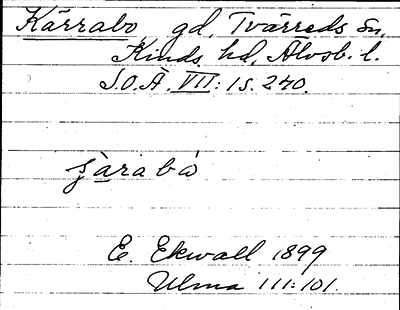 Kärrabo, gd, Tvärreds sn,
Kinds hd, Älvsb. l.
S.O.Ä. VII:1 s. 240.
E. Ekwall 1899
Ulma 111:101.